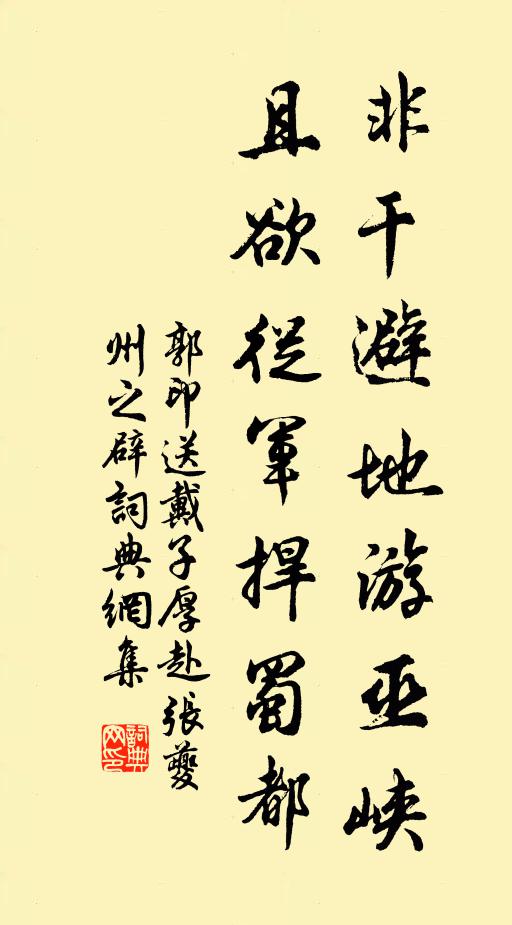 非干避地游巫峽
且欲從軍捍蜀都
郭印送戴子厚赴張夔
州之辟詞典網集
詞典
网印